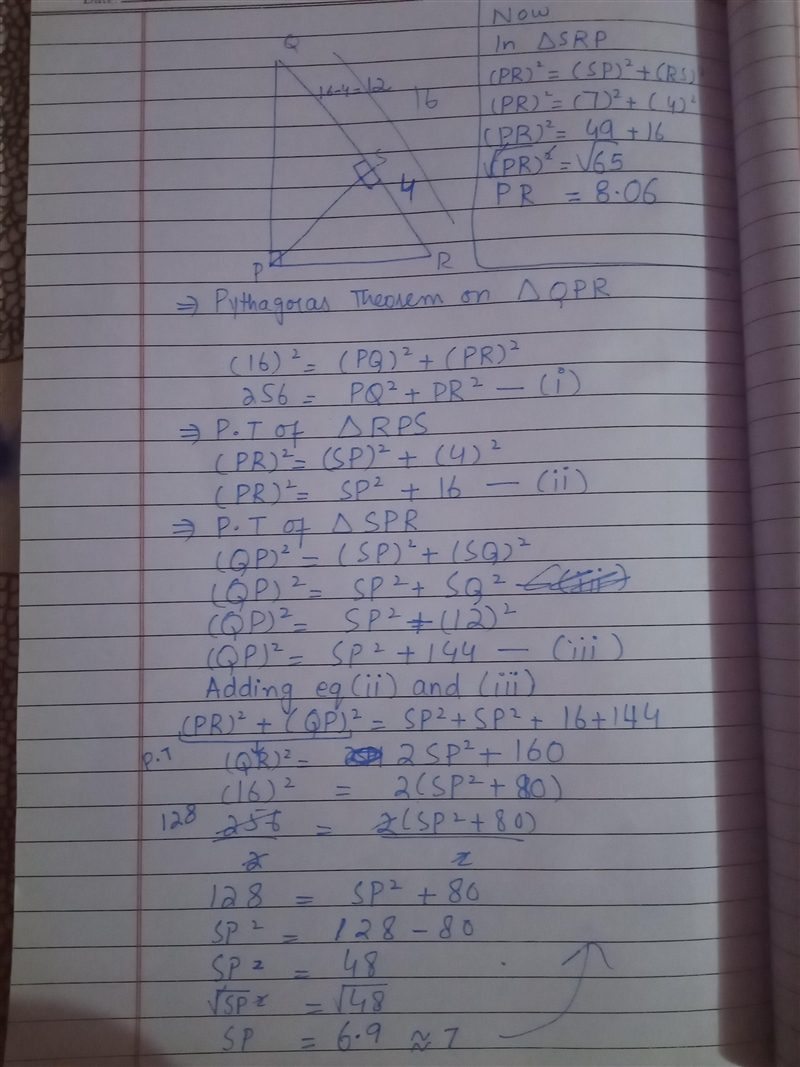 Date:
Q
16-4=12
16
S
4
P
R
Now
In △SRP
(PR)² = (SP)² + (RS)
(PR)² = (7)² + (4)²
(PR)² = 49 + 16
√(PR)² = √65
PR = 8.06
⇒ Pythagoras Theorem on △QPR
(16)² = (PQ)² + (PR)²
256 = PQ² + PR² — (i)
⇒ P.T of △RPS
(PR)² = (SP)² + (4)²
(PR)² = SP² + 16 — (ii)
⇒ P.T of △SPR
(QP)² = (SP)² + (SQ)²
(QP)² = SP² + SQ² — (iii)
(QP)² = SP² + (12)²
(QP)² = SP² + 144 — (iii)
Adding eq (ii) and (iii)
(PR)² + (QP)² = SP² + SP² + 16 + 144
P.T (QR)² = 2SP² + 160
(16)² = 2(SP² + 80)
128 256 = 2(SP² + 80)
2 2
128 = SP² + 80
SP² = 128 - 80
SP² = 48
√SP² = √48
SP = 6.9 ≈ 7